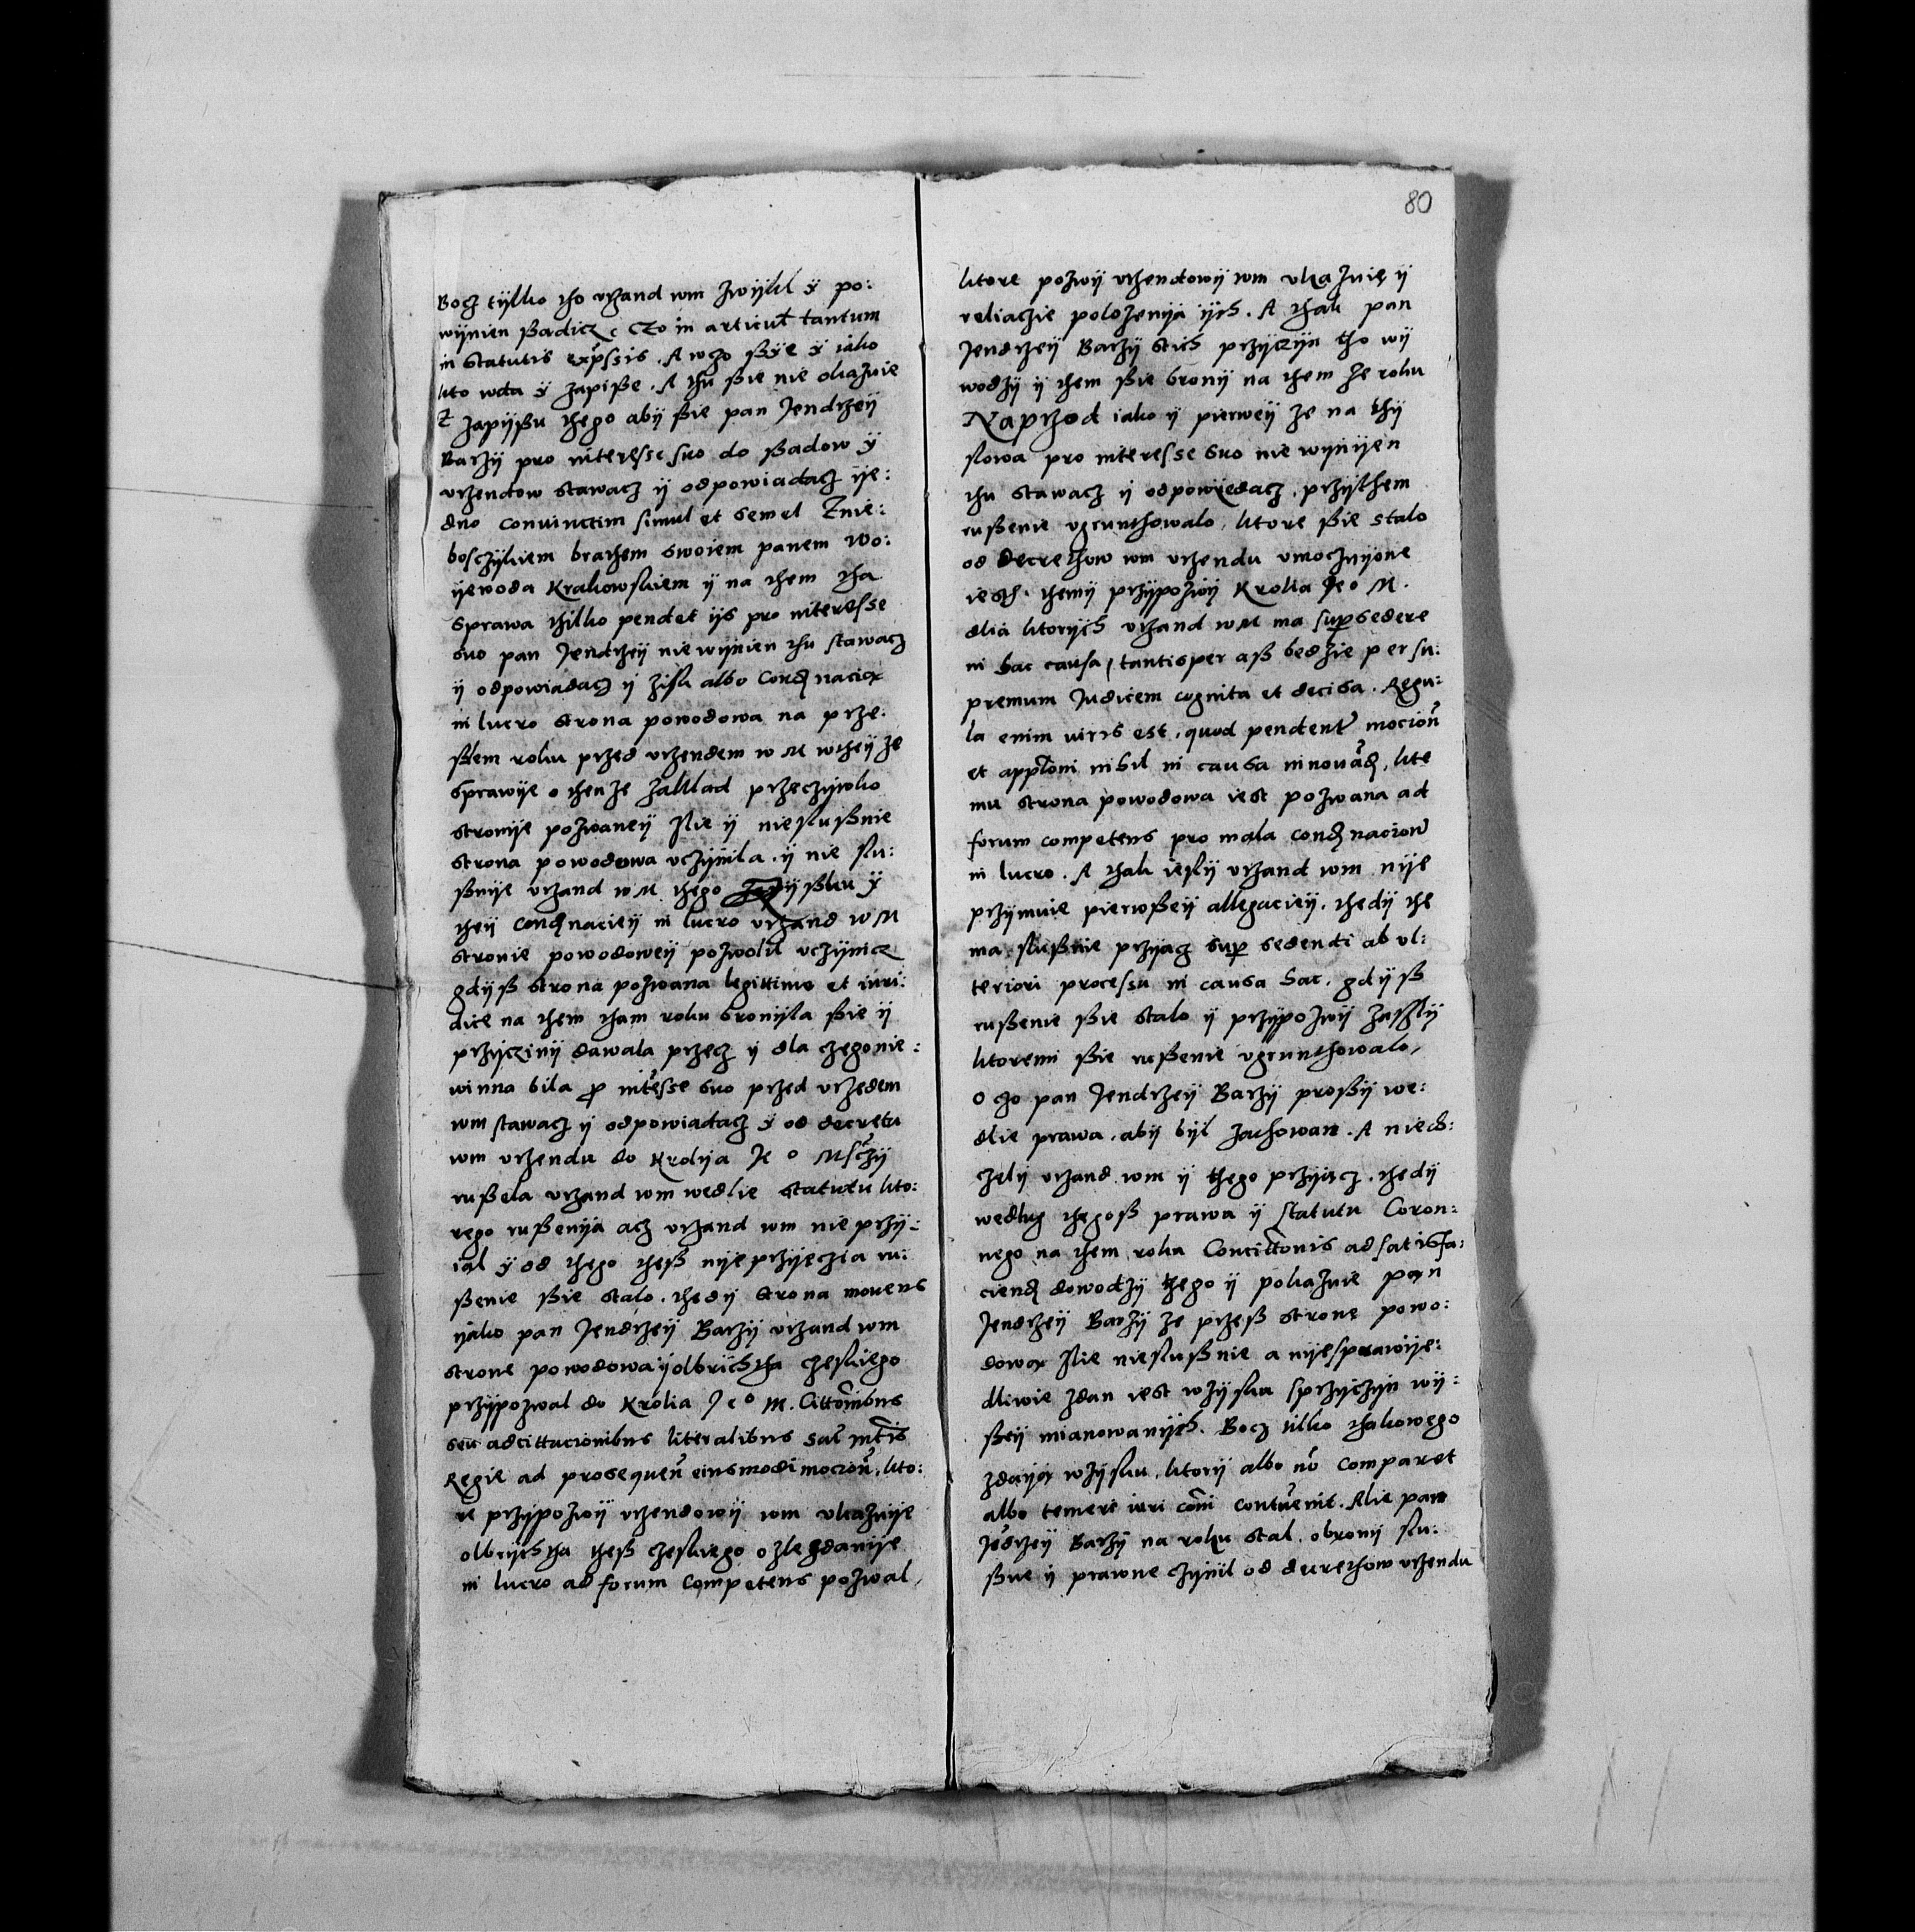 Bocz tijlko tho vrzand wm zwijkl ÿ po:
wijnien ßadicz, czo in articul tantum
in statutis expssis. A wczo ßÿe ÿ iako
kto wda ÿ zapiße. A thu ßie nie okazuie
Z zapijßu thego abij ßie pan Jendrzeij
Barzij pro interesse suo do ßadow ÿ
vrzendow stawacz ij odpowiadacz ije:
dno conuinctim simul et semel Znie:
boschzijkiem brathem swoiem panem Wo:
ijewoda Krakowskiem ij na them tha
sprawa thilko pendet ijs pro interesse
suo pan Jendrzeij niewijnien thu stawacz
ij odpowiadacz ij zisk albo Condnaciox
in lucro strona powodowa na prze:
ßlem roku przed vrzendem w M wtheij ze
sprawije o then ze zaklad przeczijwko
stronije pozwaneij zlie ij nieslußnie
strona powodowa vczijnila. ij nie slu:
ßnije vrzand w M thego ij
theij Condnacieij in lucro vrzand w M
stronie powodoweij pozwolil vczijnicz
gdijß strona pozwana legittime et iuri:
dice na them tham roku bronijla ßie ij
przijczinij dawala przecz ij dla czegonie:
winna bila pro intesse suo przed vrzedem
wm stawacz ij odpowiadacz ÿ od decretu
wm vrzendu do Krolija Je o Msczij
rußela vrzand wm wedlie statutu kto:
rego rußenija acz vrzand wm nie przij:
ial ÿ od thego theß nijeprzijeczia ru:
ßenie ßie stalo. thedij strona mouens
ijako pan Jendrzeij Barzij vrzand wm
strone powodowa ij olbrijchtha czeskiego
przijpozwal do Krolia J e o M. Cittonibus
seu adcittacionibus literalibus Sac mtis
Regie ad prosequen eiusmodi mocion, kto:
re przijpozwij vrzendowij wm vkazuije
olbrijchtha theß czeskiego o zle zdanije
in lucro ad forum Competens pozwal,
80
ktore pozwij vrzendowij wm vkazuie ij
reliaczie polozenija ijch. A thak pan
Jendrzeij Barzij stich przijczijn tho wij
wodzij ij them ßie bronij na them ze roku
Naprzod iako ij pierweij ze na thij
slowa pro interesse suo nie wijnijen
thu stawacz ij odpowiedacz, przijthem
rußenie vgrunthowalo, ktore ßie stalo
od decrethow wm vrzendu vmocznijone
iesth. themij przijpozwij Krolia Je o M.
dlia ktorijch vrzand w M ma supersedere
in hac causa, tantisper aß bedzie per su:
premum Judicem cognita et decisa. Regu:
la enim iuris est, quod pendente mocion
et apptoni nihil in causa innovad, kte
mu strona powodowa iest pozwana ad
forum competens pro mala condnacion
in lucro. A thak ieslij vrzand wm nije
przijmuie pierwßeij allegacieij. thedij the
ma slußnie przijacz super sedendi ab vl:
teriori processu in causa hac, gdijß
rußenie ßie stalo ij przijpozwij zaszlij
ktoremi ßie rußenie vgrunthowalo,
o czo pan Jendrzeij Barzij proßij we:
dlie prawa, abij bijl zachowan. A niech:
czelij vrzand wm ij thego przijacz. thedij
wedlug thegoß prawa ij statutu Coron:
nego na them roku Concittonis ad satisfa:
ciend dowodzij thego ij pokazuie pan
Jendrzeij Barzij ze przeß strone powo:
dowa zlie nieslußnie a nijesprawije:
dliwie zdan iest wzijsku sprzijczijn wij:
ßeij mianowanijch. Bocz tilko thakowego
zdaija wzijsku, ktorij albo no comparet
albo temere iuri comi contrauenit. Alie pan
Jedrzeij Barzij na roku stal, obronij slu:
ßne ij prawne czijnil od decrethow vrzendu